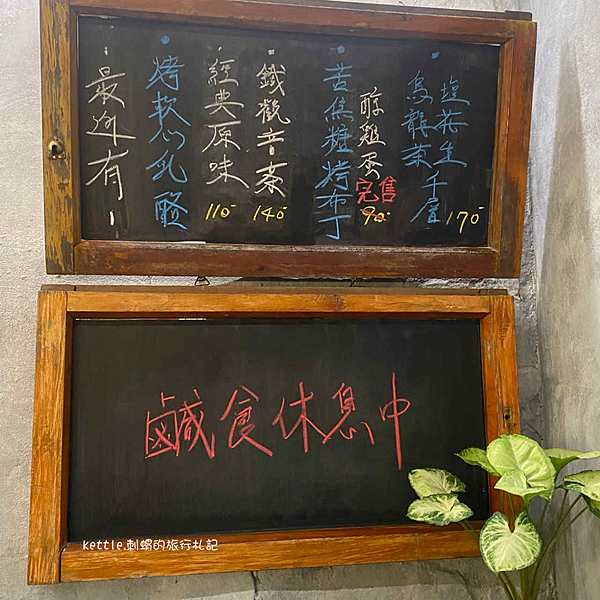 最近有-
・烤軟心乳酪
・經典原味
110
・鐵觀音茶
140
・苦焦糖烤布丁
雞蛋
完售
90
・塩花生
烏龍茶
千層
170
鹹食休息中
kettle.刺蝟的旅行札記